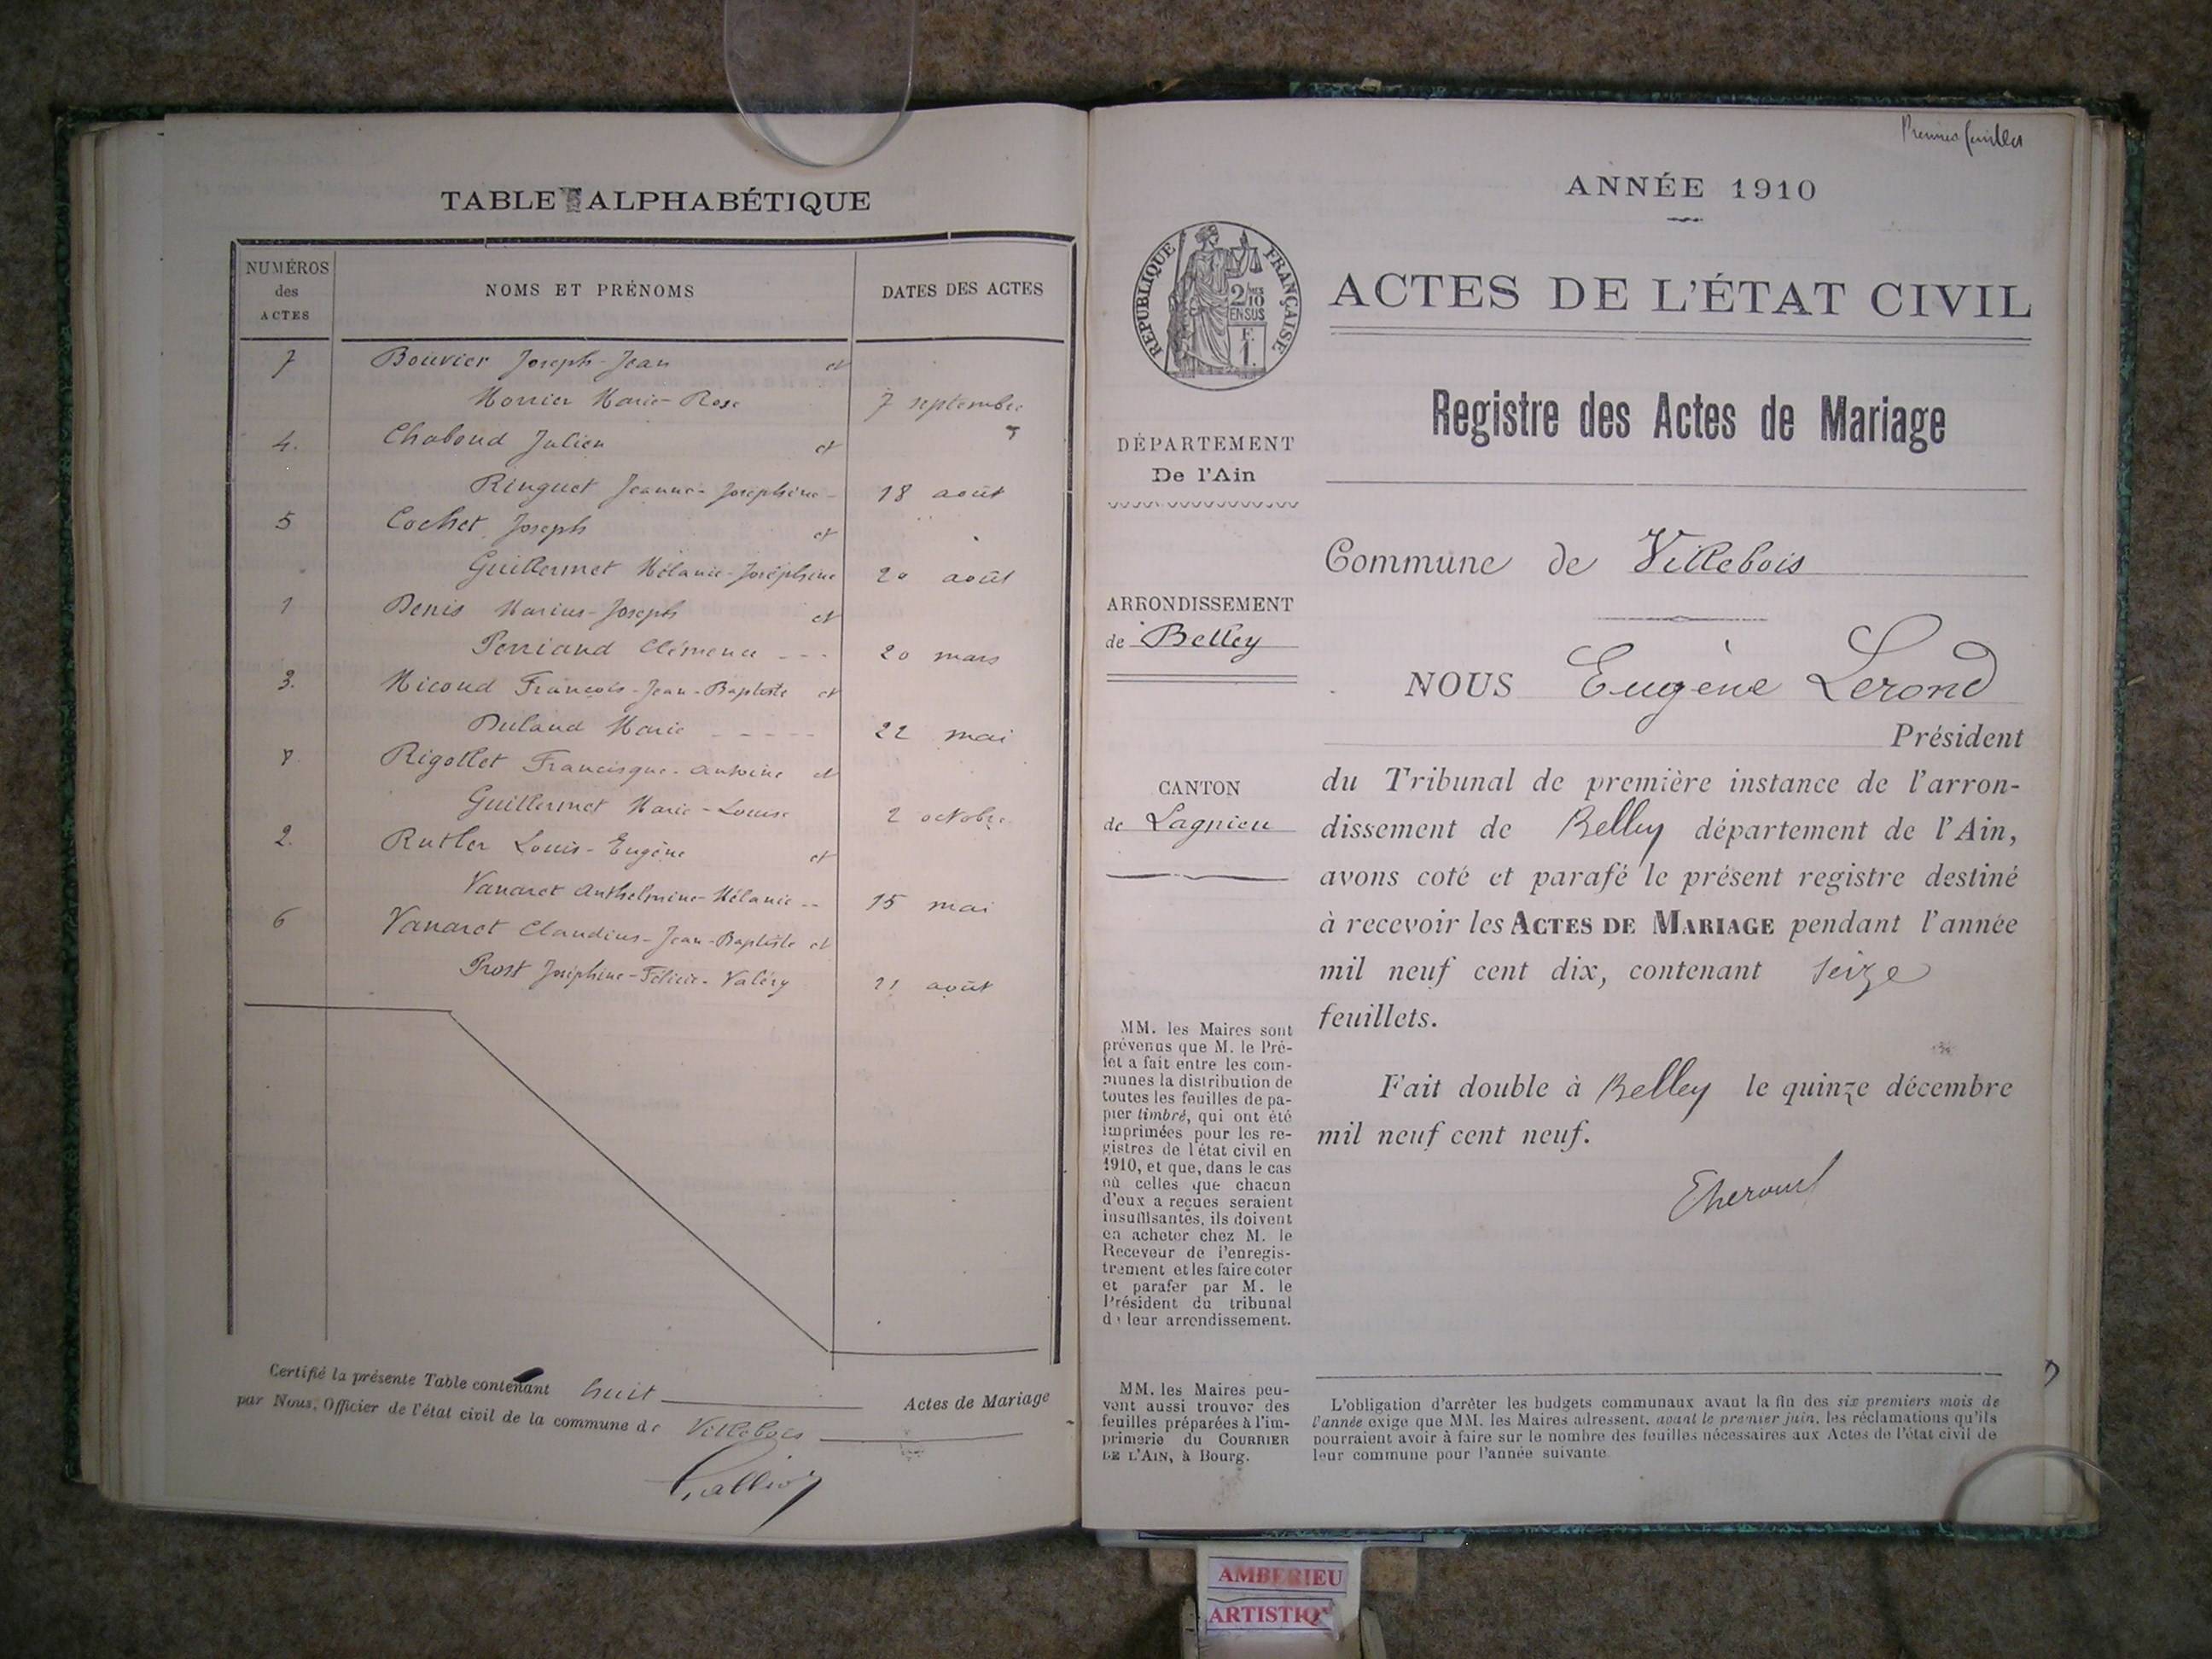 TABLE ALPHABÉTIQUE
NUMÉROS
des
ACTES
NOMS ET PRÉNOMS
DATES DES ACTES
7 Bouvier Joseph-Jean et
Monier Marie-Rose 7 septembre
4. Chaboud Julien et
Ringuet Jeanne-Joséphine - 18 août
5 Cochet Joseph et
Guillermet Mélanie-Joséphine 20 août
1 Denis Marius-Joseph et
Perriand Clémence - - - 20 mars
3. Micoud François-Jean-Baptiste et
Duland Marie - - - - - 22 mai
8. Rigollet Francisque-Antoine et
Guillermet Marie-Louise 2 octobre
2. Rutler Louis-Eugène et
Vanaret Anthelmine-Mélanie -- 15 mai
6 Vanaret Claudius-Jean-Baptiste et
Prost Joséphine-Félicie-Valéry 21 août
Certifié la présente Table contenant huit Actes de Mariage
par Nous, Officier de l'état civil de la commune de Villebois
ANNÉE 1910
RÉPUBLIQUE FRANÇAISE
2/10
EN SUS
F.
1.
ACTES DE L'ÉTAT CIVIL
Registre des Actes de Mariage
DÉPARTEMENT
De l'Ain
ARRONDISSEMENT
de Belley
CANTON
de Lagnieu
Commune de Villebois
NOUS Eugène Lerond
Président
du Tribunal de première instance de l'arron-
dissement de Belley département de l'Ain,
avons coté et parafé le présent registre destiné
à recevoir les ACTES DE MARIAGE pendant l'année
mil neuf cent dix, contenant seize
feuillets.
Fait double à Belley le quinze décembre
mil neuf cent neuf.
MM. les Maires sont
prévenus que M. le Pré-
fet a fait entre les com-
munes la distribution de
toutes les feuilles de pa-
pier timbré, qui ont été
imprimées pour les re-
gistres de l'état civil en
1910, et que, dans le cas
où celles que chacun
d'eux a reçues seraient
insuffisantes, ils doivent
en acheter chez M. le
Receveur de l'enregis-
trement et les faire coter
et parafer par M. le
Président du tribunal
de leur arrondissement.
MM. les Maires peu-
vent aussi trouver des
feuilles préparées à l'im-
primerie du COURRIER
DE L'AIN, à Bourg.
L'obligation d'arrêter les budgets communaux avant la fin des six premiers mois de
l'année exige que MM. les Maires adressent, avant le premier juin, les réclamations qu'ils
pourraient avoir à faire sur le nombre des feuilles nécessaires aux Actes de l'état civil de
leur commune pour l'année suivante.
AMBERIEU
ARTISTIQ